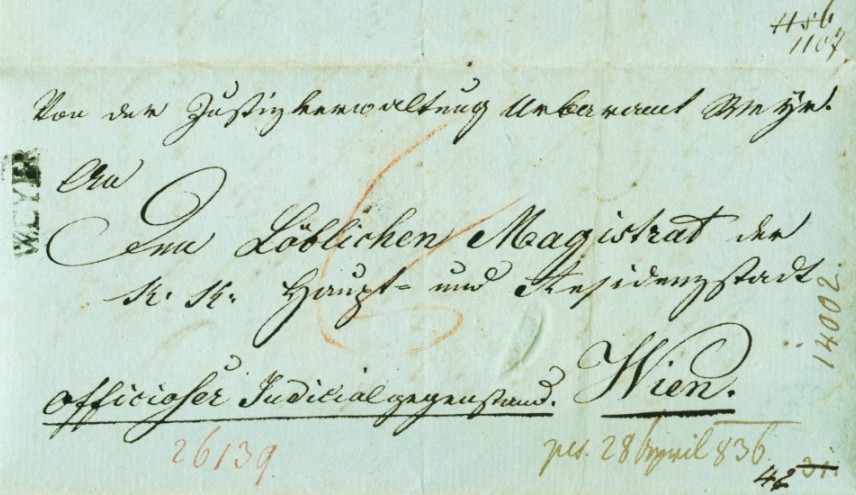 1107
Von der Justizverwaltung Urbaramt Weyr.
WEYER
An
Den Löblichen Magistrat der
K. K. Haupt- und Residenzstadt
Wien.
officioser Judicialgegenstand.
14002.
26139
28 April 836
42 31.